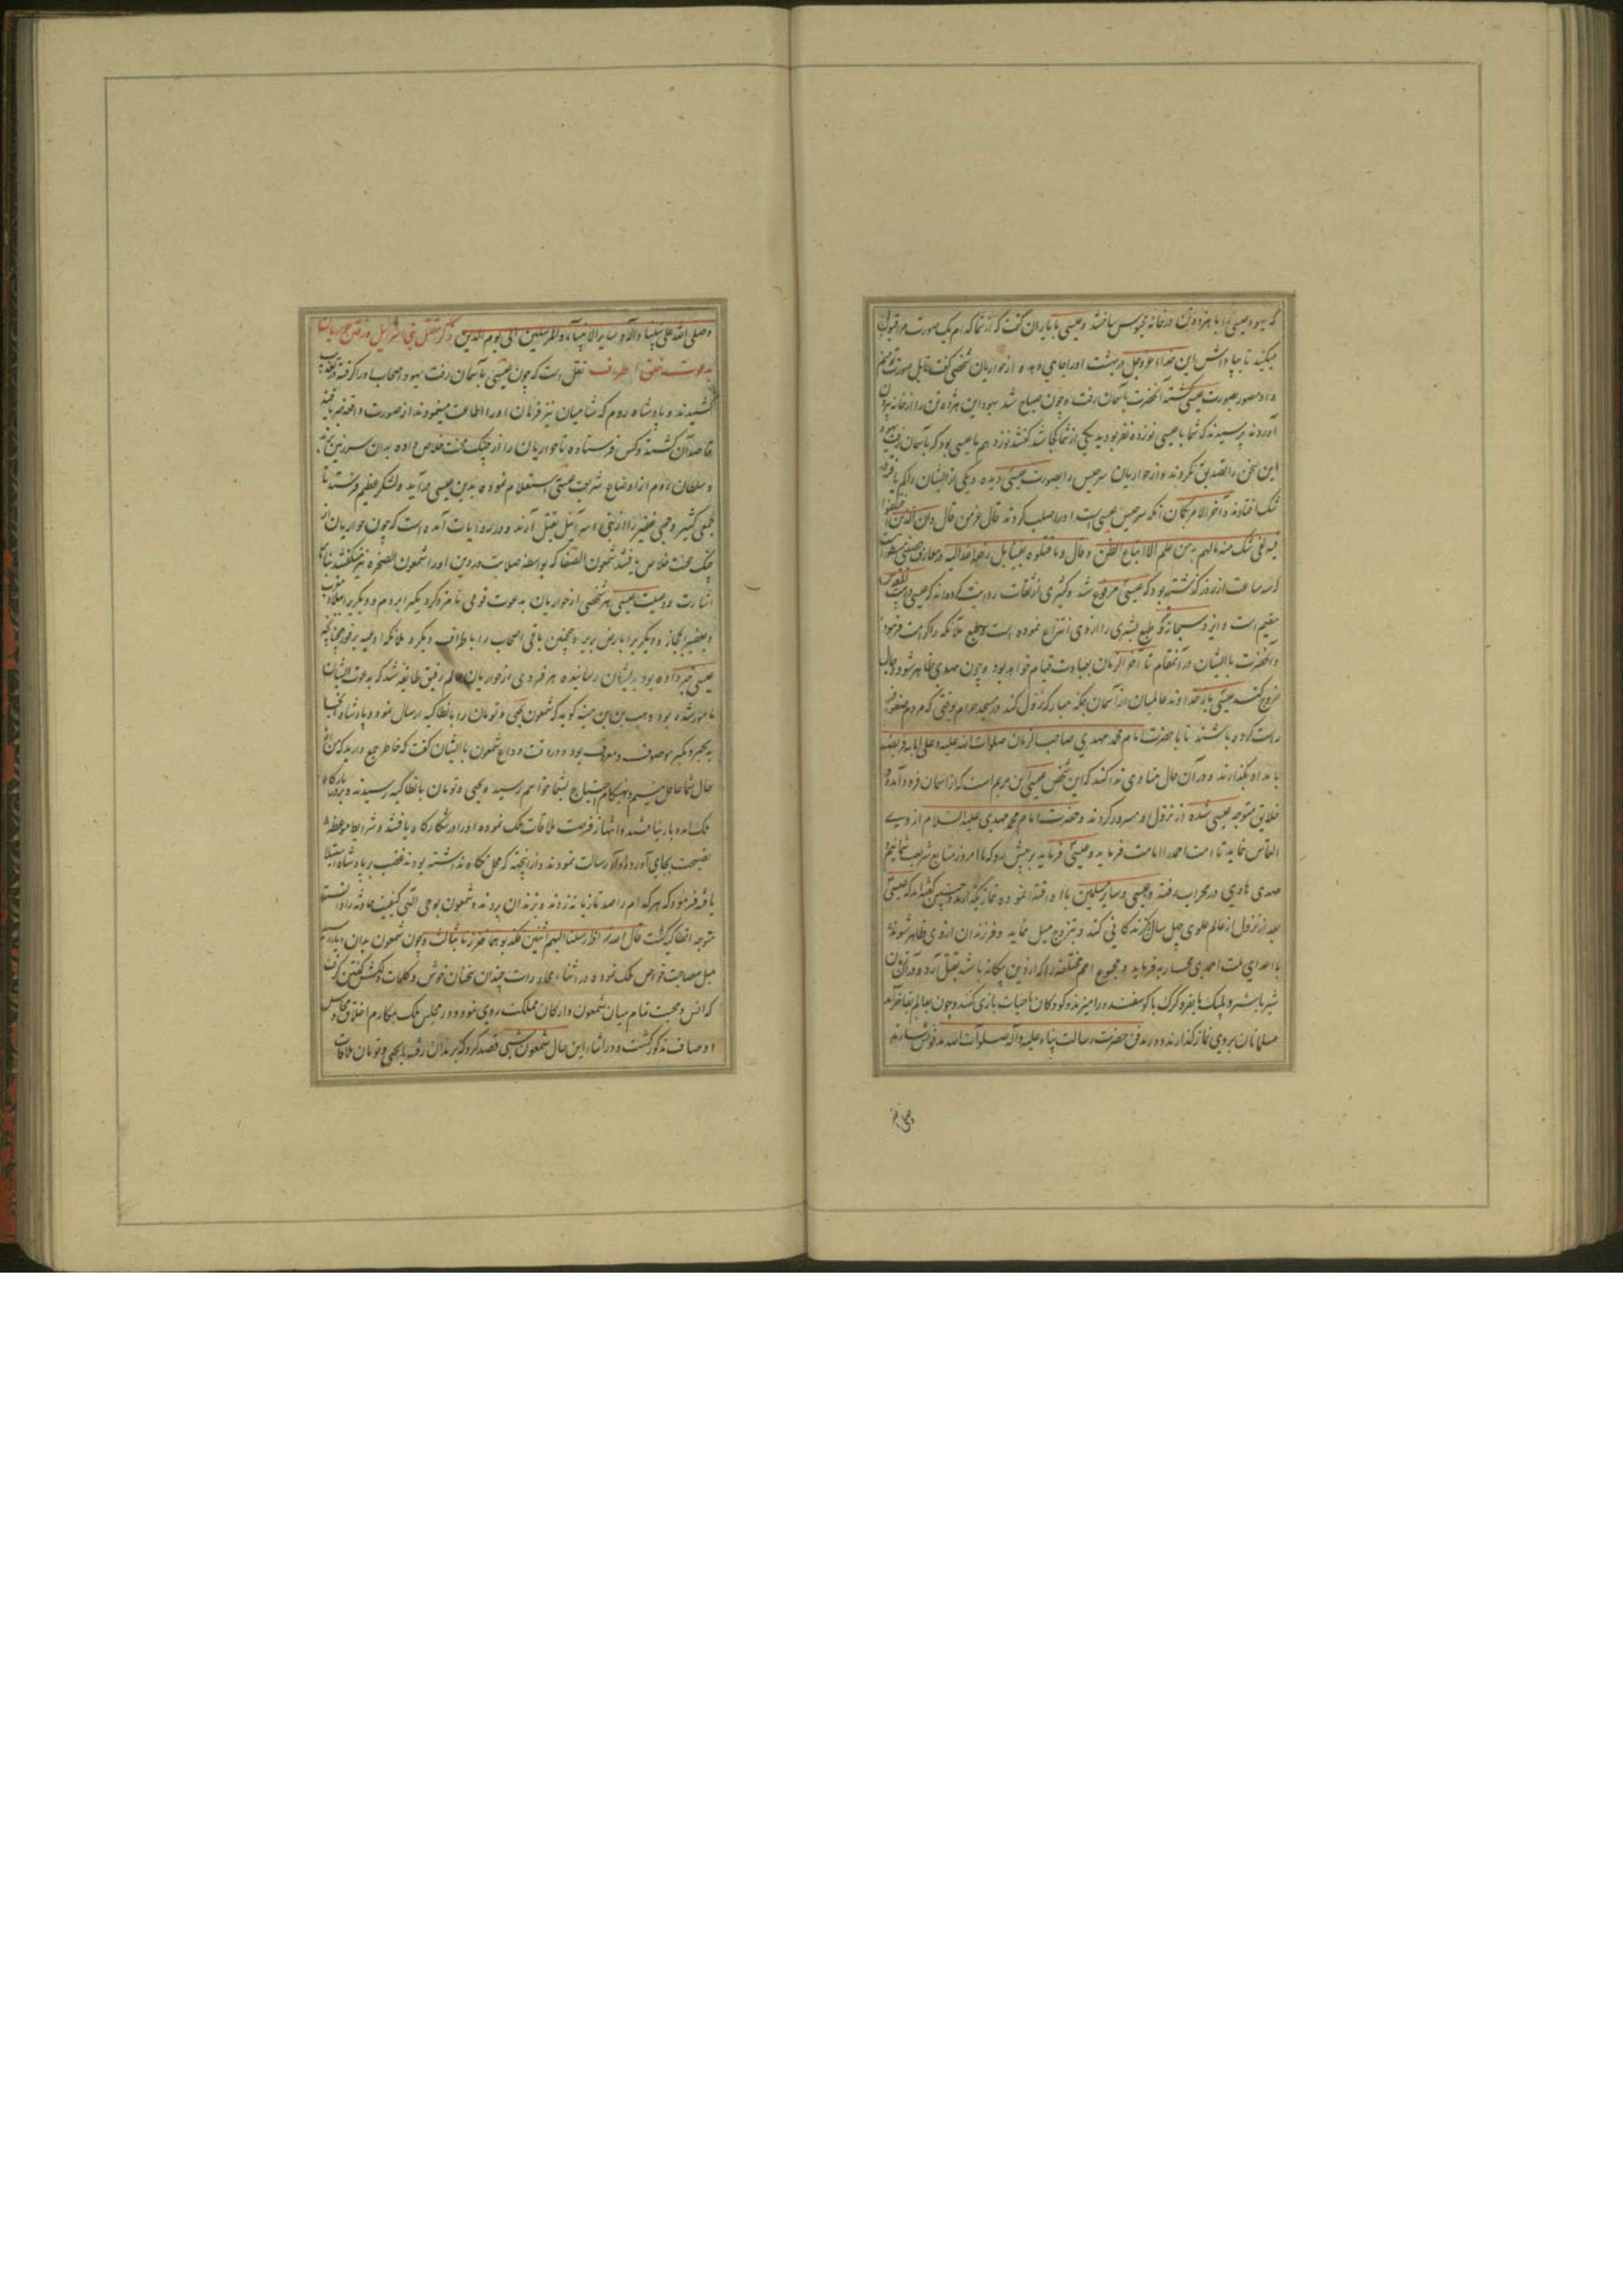 که یهود عیسی را با هژده تن در خانه محبوس ساختند و عیسی با یاران گفت که از شما کدام یک صورت مرا قبول
میکنید تا بپاداش این خداء عزوجل در بهشت او را جای دهد از حواریان شخصی گفت قابل صورت تو منم
و او مصور بصورت عیسی گشته آنحضرت بآسمان رفت و چون صباح شد یهود این هژده تن را از خانه بیرون
آوردند پرسیدند که شما با عیسی نوزده نفر بودید یکی از شما کجا شد گفتند نوزدهم ما عیسی بود که بآسمان رفت یهود
این سخن را تصدیق نکردند و از حواریان سرجس را بصورت عیسی دیده و یکی از ایشان را کم یافته در
شک افتادند و آخر الامر بگمان آنکه سرجس عیسی است او را صلب کردند قال عز من قال وان الذین اختلفوا
فیه لفی شک منه مالهم به من علم الا اتباع الظن و قال و ما قتلوه یقینا بل رفعه الله الیه و در معارف حصنی مسطور است
که سه ساعت از روز گذشته بود که عیسی مرفوع شد و کثیری از ثقات روایت کرده‌اند که عیسی در بیت المقدس
مقیم است و ایزد سبحانه و تع طبع بشری را از وی انتزاع نموده است و طبع ملائکه را کرامت فرموده
و آنحضرت با ایشان در آنمقام تا آخر الزمان بعبادت قیام خواهد بود و چون مهدی ظاهر شود و دجال
خروج کند عیسی بامر خداوند عالمیان از آسمان بمکه مبارکه نزول کند در مسجد حرام وقتی که مردم صفوف
راست کرده باشند تا با حضرت امام محمد مهدی صاحب الزمان صلوات الله علیه و علی آبائه فریضه
بامداد بگذارند و در آن حال منادی ندا کند که این شخص عیسی ابن مریم است که از آسمان فرود آمده و
خلایق متوجه عیسی شده از نزول او مسرور گردند و حضرت امام محمد مهدی علیه السلام از وی
التماس نماید تا امت احمد را امامت فرماید و عیسی فرماید تو پیش رو که ما امروز متابع شریعت شمائیم
مهدی هادی در محراب رفته و عیسی و سایر مسلمین با او اقتدا نموده نماز بگذارند و چنین گفته‌اند که عیسی
بعد از نزول از عالم علوی چهل سال زندگانی کند و بتزوج میل نماید و فرزندان از وی ظاهر شوند و
با اعدای ملت احمدی محاربه فرماید و مجموع امم مختلفه را که از دین بیگانه باشند بقتل آرد و در آن زمان
شیر با شتر و پلنگ با بقره و گرگ با گوسفند درآمیزند و کودکان با حیات بازی کنند و چون بعالم بقا خرامد
مسلمانان بر وی نماز گذارند و در مدفن حضرت رسالت پناه علیه و آله صلوات الله مدفون سازند
وصلی
وصلی الله علی نبینا و آله و سایر الانبیاء و المرسلین الی یوم الدین ذکر قتل بنی اسرائیل و رفتن حواریان
بدعوت خلق اطراف نقل است که چون عیسی بآسمان رفت یهود اصحاب او را گرفته در تعذیب
کشیدند و پادشاه روم که شامیان نیز فرمان او را اطاعت مینمودند از صورت واقعه خبر یافته
قاصد آن گشته و کس فرستاده تا حواریان را از چنگ محنت خلاص داده بدان سرزمین
و سلطان روم از اوضاع شریعت عیسی استعلام نموده بدین عیسی درآید و لشکر عظیم فرستد تا
جمعی کثیر و جمی غفیر را از بنی اسرائیل بقتل آرند و در روایات آمده است که چون حواریان از
چنگ محنت خلاص یافتند شمعون الصفا که بواسطه صلابت در دین او را شمعون الصخره نیز میگفتند بنا
اشارت و وصیت عیسی هر شخصی از حواریان بدعوت قومی نامزد کرد یکی را بروم و دیگری را ببلاد مغرب
و بعضی را بحجاز و دیگری را بارض بربر و همچنین باقی اصحاب را باطراف دیگر و ملائکه ادعیه بر فور چنانچه
عیسی خبر داده بود بدیشان رسانیده هر فردی از حواریان عالم رفیق طایفه شد که بدعوت ایشان
مامور شده بود وهب بن منبه گوید که شمعون یحیی و تومان را بانطاکیه ارسال نمود و پادشاه آنجا
به تجبر و تکبر موصوف و معروف بود و در وقت وداع شمعون با ایشان گفت که خاطر جمع دارید که من از
حال شما غافل نیستم و بهنگام احتیاج بشما خواهم رسید و یحیی و تومان بانطاکیه رسیدند و بدرگاه
ملک آمده بار نیافتند و انتهاز فرصت ملاقات ملک نموده او را در شکارگاه یافتند و شرایط موعظه
نصیحت بجای آورده اداء رسالت نمودند و از آنچه که محل نگاه نداشته بودند غضب بر پادشاه استیلا
یافته فرمود که هر کدام را صد تازیانه زدند و بزندان بردند و شمعون بوحی الهی کیفیت حادثه را دانسته
متوجه انطاکیه گشت قال الله تع اذ ارسلنا الیهم اثنین فکذبوهما فعززنا بثالث و چون شمعون بدان دیار رسید
میل مصاحبت خواص ملک نموده در اثناء محاورات چندان سخنان خوش و کلمات دلکش گفتن گرفت
که انس و محبت تمام میان شمعون و ارکان مملکت روی نمود و در مجلس ملک مکارم اخلاق و محاسن
اوصاف مذکور گشت و در اثناء این حال شمعون شبی قصد کرد که بزندان رفته با یحیی و تومان ملاقات